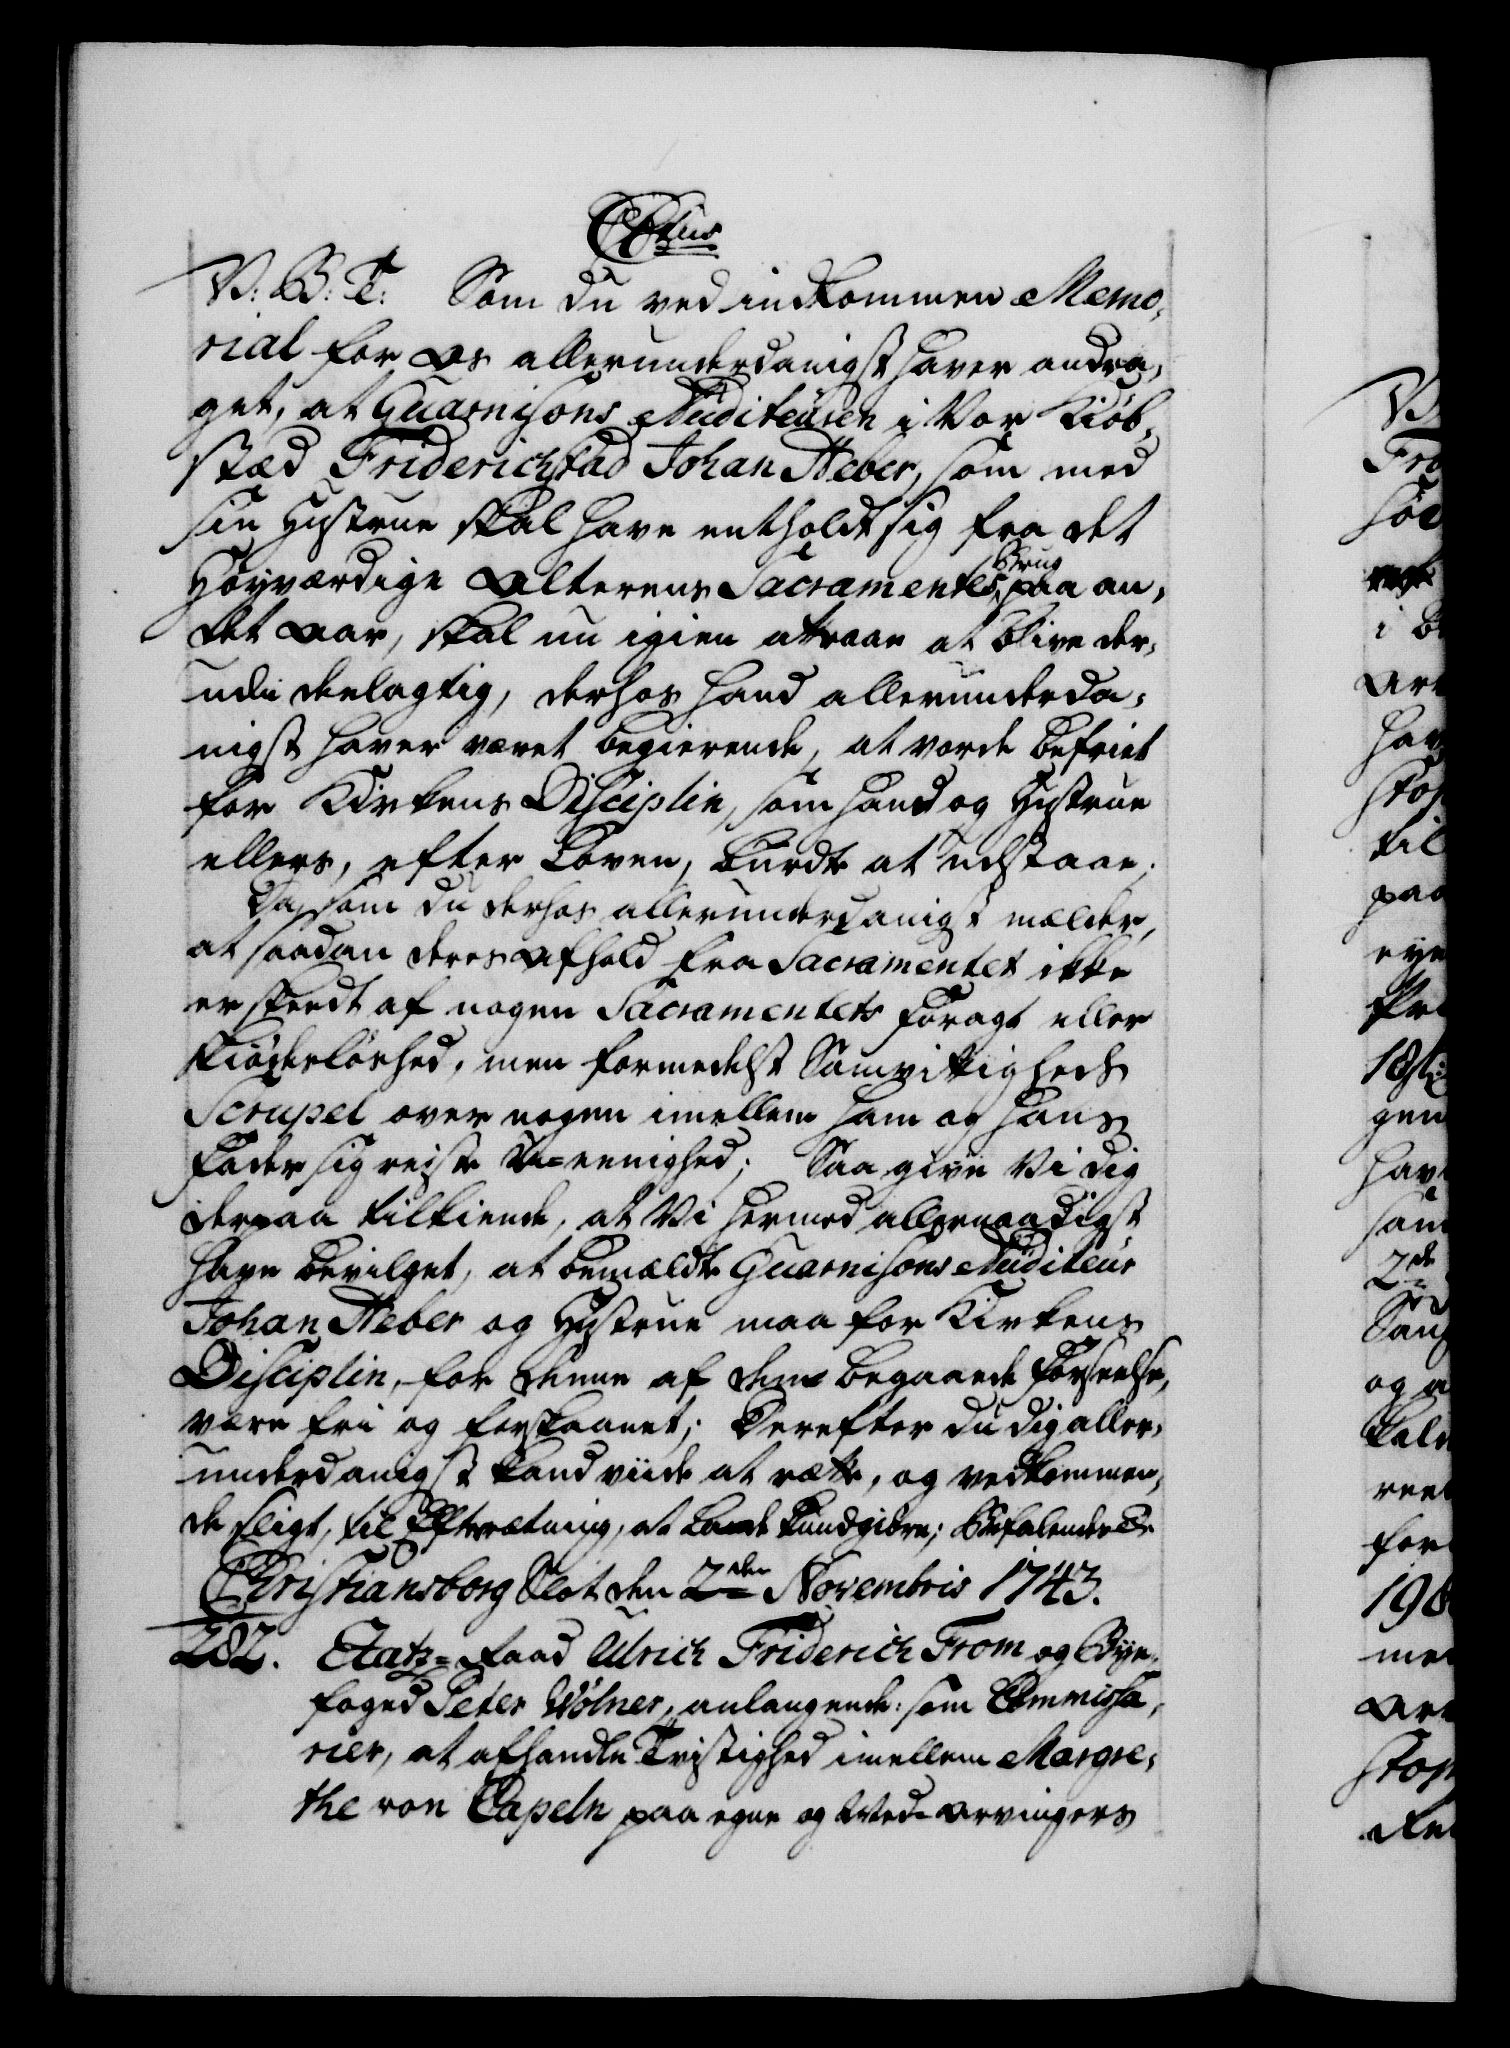 CVItus
V: G: T: Som du ved indkommen Memo,
rial for Os allerunderdanigst haver andra,
get, at Guarnisons Auditeuren i Vor Kiöb,
stæd Friderichstad Johan Weber, som med
sin Hystrue skal have entholdt sig fra det
Höyværdige Alterens Sacramentes Brug paa an,
det Aar, skal nu igien attraae at blive der,
udi deelagtig, derhos hand allerunderda,
nigst haver været begierende, at vorde befriet
for Kirkens Disciplin, som hand og Hystrue
ellers, efter Loven, burdte at udstaae;
Da, som du derhos allerunderdanigst melder,
at saadan deres Afhold fra Sacramentet ikke
er skeedt af nogen Sacramentets Foragt eller
Skiödeslöshed, men formedelst Samvittigheds
Scrupel over nogen imellem ham og hans
Fader sig reiste U-eenighed; Saa give Vi dig
derpaa tilkiende, at Vi hermed allernaadigst
have bevilget, at bemældte Guarnisons Auditeur
Johan Weber og Hystrue maa for Kirkens
Disciplin, for denne af dem begaaede Forseelse,
være fri og forskaanet; Derefter du dig aller,
underdanigst kand viide at rætte, og vedkommen,
de sligt, til Efterrætning, at lade kundgiöre; Befalendes
Christiansborg Slot den 2den Novembris 1743.
282. Etats-Raad Ulrich Friderich From og Bye,
foged Peter Wölner, anlangende: som Commissa,
rier, at afhandle Tvistighed imellem Margre,
the von Capeln paa egne og Med-Arvingers